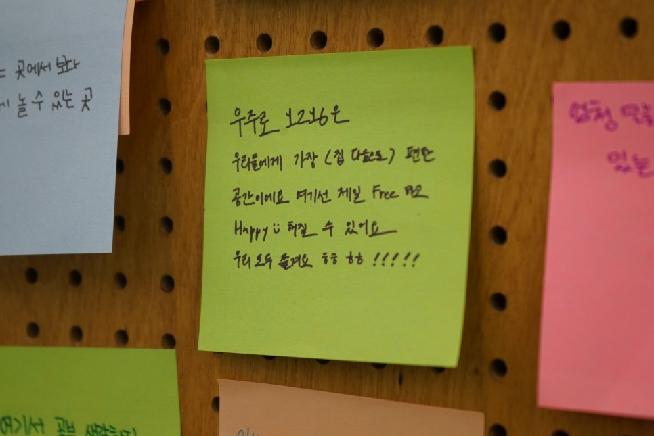 곳에서 보다
놀 수 있는 곳
우주로 1216은
우리들에게 가장 (집 다음으로) 편한
공간이에요 여기선 제일 Free 하고
Happy ü 해질 수 있어요
우리 모두 즐겨요 ㅎㅎ ㅎㅎ !!!!!
엄청
있는
여기서 공부